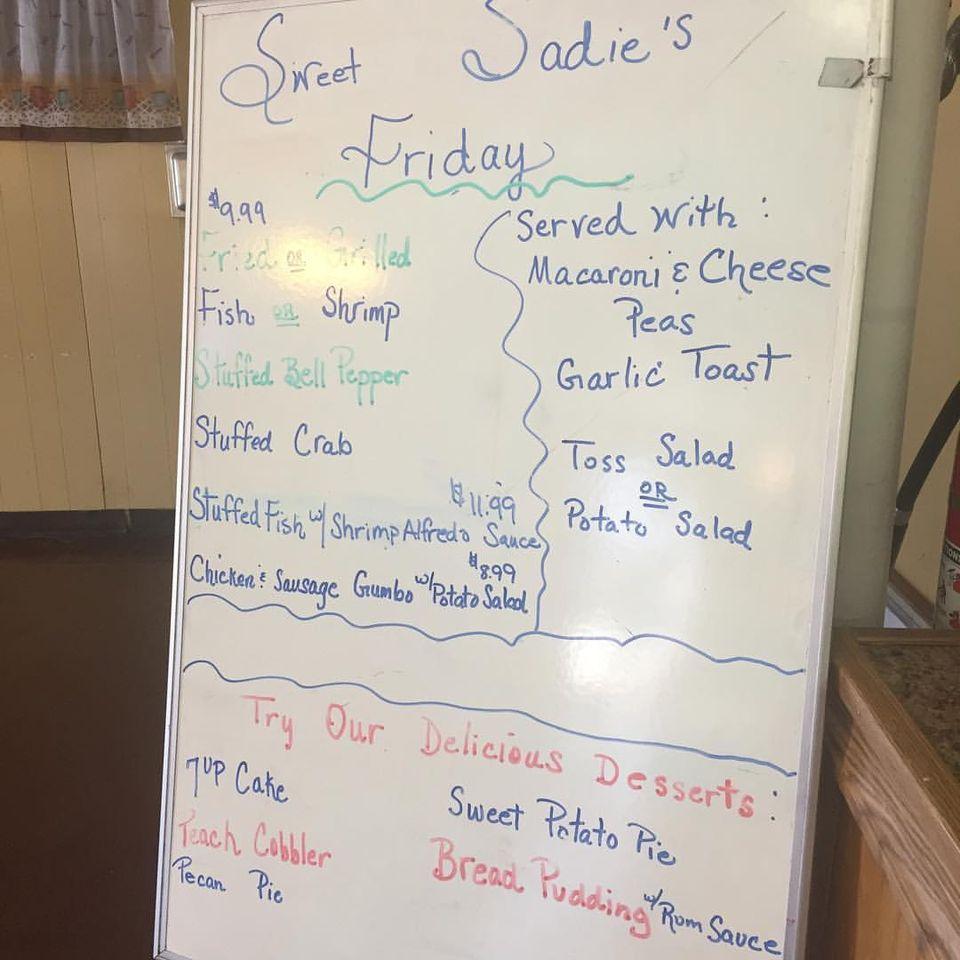 Sweet Sadie's
Friday
$9.99
Fried or Grilled
Fish or Shrimp
Stuffed Bell Pepper
Stuffed Crab
$11.99
Stuffed Fish w/ Shrimp Alfredo Sauce
$8.99
Chicken & Sausage Gumbo w/ Potato Salad
Served With:
Macaroni & Cheese
Peas
Garlic Toast
Toss Salad
OR
Potato Salad
Try Our Delicious Desserts:
7UP Cake
Peach Cobbler
Pecan Pie
Sweet Potato Pie
Bread Pudding w/ Rum Sauce